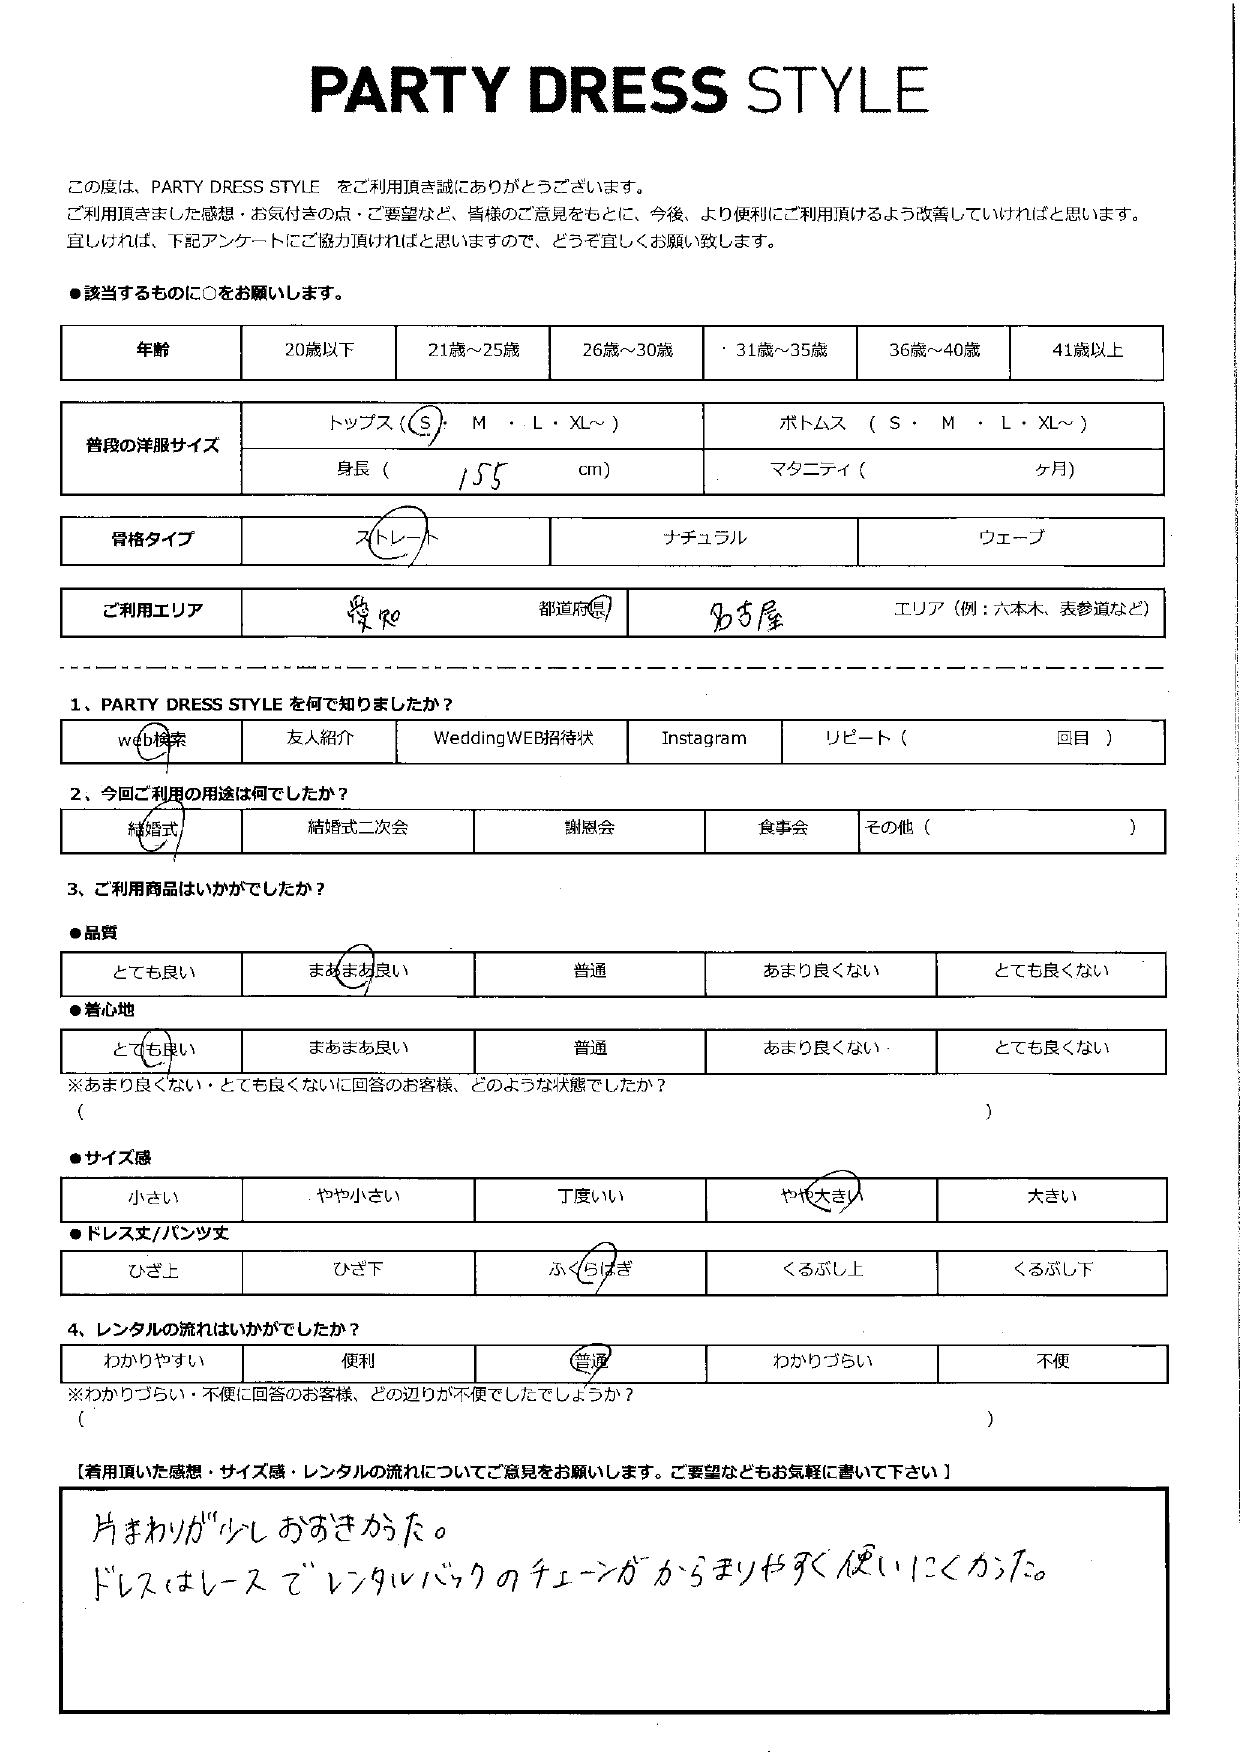 PARTY DRESS STYLE
この度は、PARTY DRESS STYLE をご利用頂き誠にありがとうございます。
ご利用頂きました感想・お気付きの点・ご要望など、皆様のご意見をもとに、今後、より便利にご利用頂けるよう改善していければと思います。
宜しければ、下記アンケートにご協力頂ければと思いますので、どうぞ宜しくお願い致します。
●該当するものに○をお願いします。
年齢 20歳以下 21歳～25歳 26歳～30歳 31歳～35歳 36歳～40歳 41歳以上
普段の洋服サイズ トップス（ S ・ M ・ L ・ XL～ ） ボトムス （ S ・ M ・ L ・ XL～ ）
身長（ 155 cm） マタニティ（ ヶ月）
骨格タイプ ストレート ナチュラル ウェーブ
ご利用エリア 愛知 都道府県 名古屋 エリア（例：六本木、表参道など）
1、PARTY DRESS STYLE を何で知りましたか？
web検索 友人紹介 WeddingWEB招待状 Instagram リピート（ 回目 ）
2、今回ご利用の用途は何でしたか？
結婚式 結婚式二次会 謝恩会 食事会 その他（ ）
3、ご利用商品はいかがでしたか？
●品質
とても良い まあまあ良い 普通 あまり良くない とても良くない
●着心地
とても良い まあまあ良い 普通 あまり良くない とても良くない
※あまり良くない・とても良くないに回答のお客様、どのような状態でしたか？
（ ）
●サイズ感
小さい やや小さい 丁度いい やや大きい 大きい
●ドレス丈/パンツ丈
ひざ上 ひざ下 ふくらはぎ くるぶし上 くるぶし下
4、レンタルの流れはいかがでしたか？
わかりやすい 便利 普通 わかりづらい 不便
※わかりづらい・不便に回答のお客様、どの辺りが不便でしたでしょうか？
（ ）
【着用頂いた感想・サイズ感・レンタルの流れについてご意見をお願いします。ご要望などもお気軽に書いて下さい 】
片まわりが少しおおきかった。
ドレスはレースでレンタルバックのチェーンがからまりやすく使いにくかった。